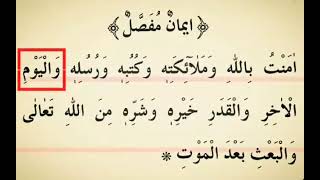 ﴿ اِیْمَانٌ مُفَصَّلٌ ﴾
اٰمَنْتُ بِاللهِ وَمَلَآئِكَتِهٖ وَكُتُبِهٖ وَرُسُلِهٖ وَالْيَوْمِ
الْاٰخِرِ وَالْقَدَرِ خَيْرِهٖ وَشَرِّهٖ مِنَ اللهِ تَعَالٰى
وَالْبَعْثِ بَعْدَ الْمَوْتِ